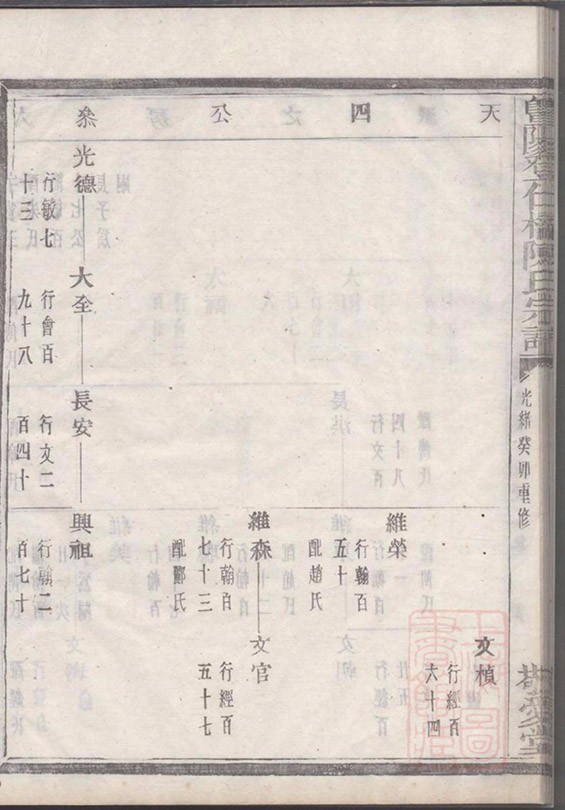 陳氏宗譜
光緒癸卯重修
天四公叅
文楨
行經百
六十四
維榮
行翰百
五十
配趙氏
維森
行翰百
七十三
配酈氏
文官
行經百
五十七
光德
行敏七
十三
大全
行會百
九十八
長安
行文二
百四十
興祖
行翰二
百七十